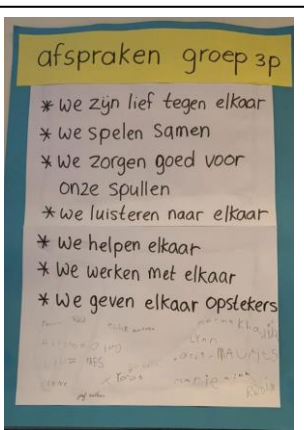 afspraken groep 3p
* we zijn lief tegen elkaar
* we spelen samen
* we zorgen goed voor
onze spullen
* we luisteren naar elkaar
* we helpen elkaar
* we werken met elkaar
* we geven elkaar opstekers